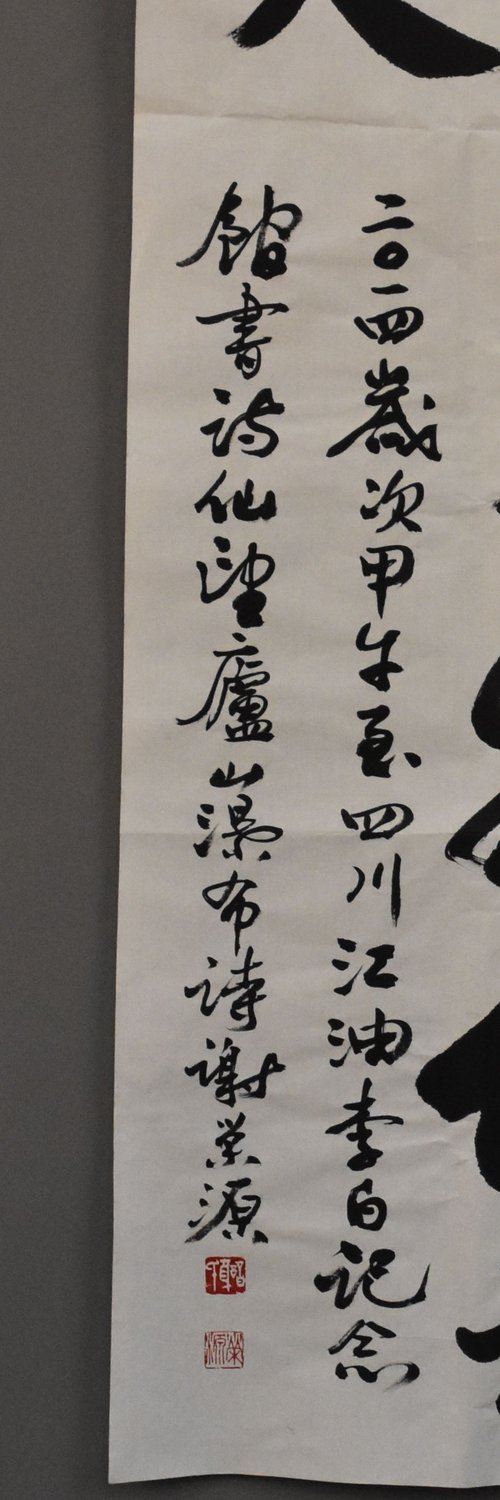 二〇一四歲次甲午至四川江油李白記念
館書詩仙望廬山瀑布詩謝榮源
榮源